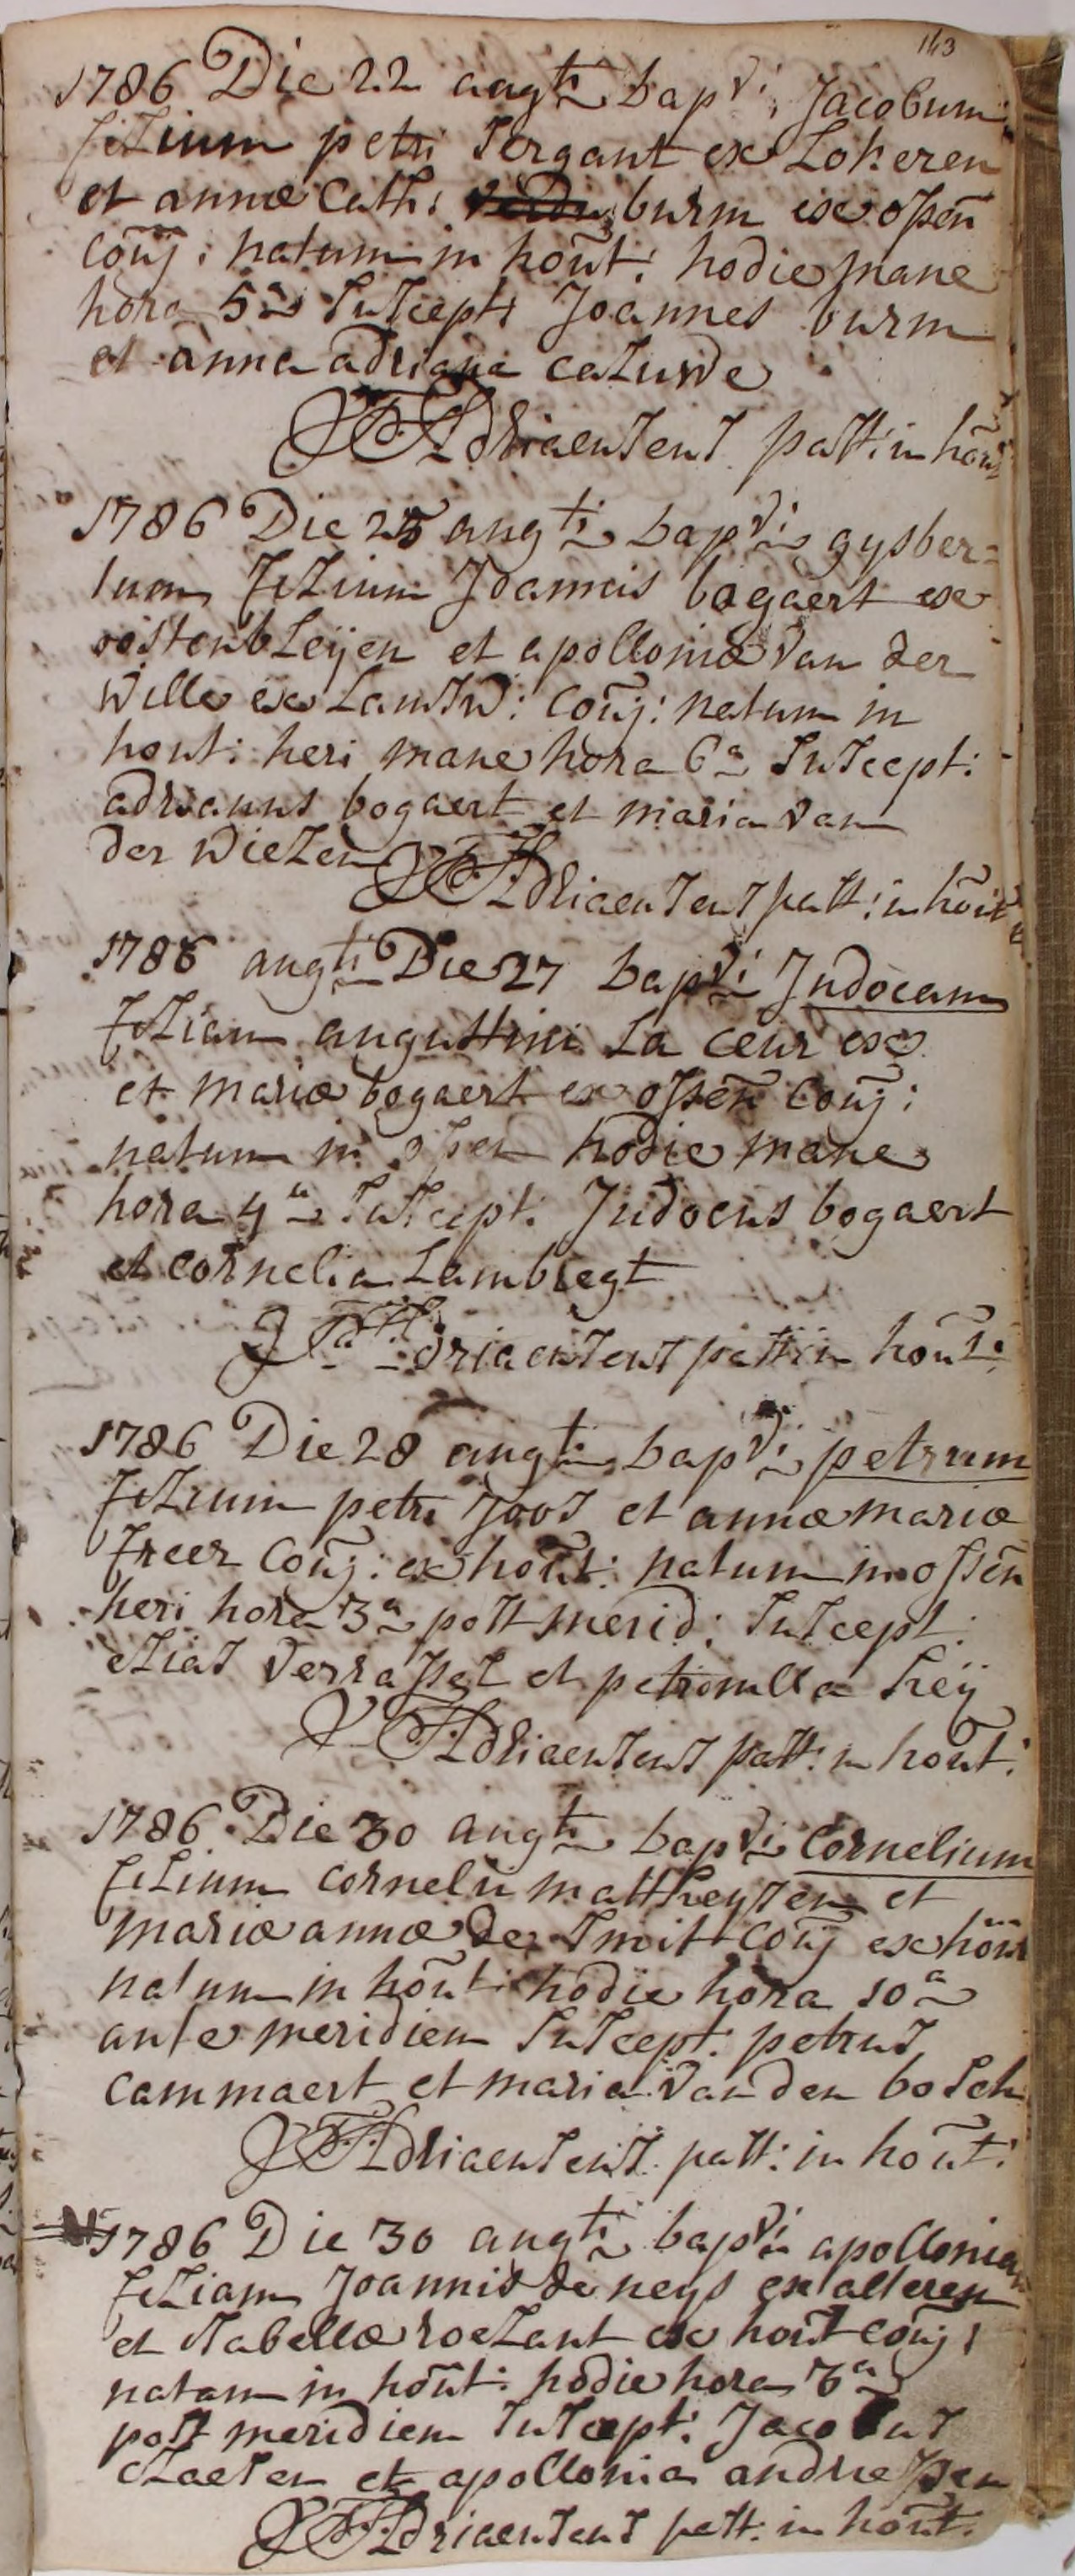 143
1786 Die 22 augti bapvi Jacobum
filium petri Sergant ex Lokeren
et annæ Cath: burm ex ossen
conj: natum in hout: hodie mane
hora 5a suscept: Joannes burm
et anna adriana caluwe
Adriaensens past: in hout
1786 Die 25 augti bapvi gysber=
tum filium Joannis bogaert ex
oostenbleijen et apolloniæ van der
wille ex Lamsw: conj: natum in
hont: heri mane hora 6a suscept:
adrianus bogaert et maria van
der wielen
Adriaensens past: in hout
1786 augti Die 27 bapvi Judocam
filiam augustini La cœur ex
et mariæ bogaert ex ossen conj:
natum in ossen hodie mane
hora 4a suscept: Judocus bogaert
et cornelia Lambregt
Adriaensens past: in hout:
1786 Die 28 augti bapvi petrum
filium petri Joos et annæ mariæ
freer conj: ex hout: natum in ossen
heri hora 3a post merid: suscept:
elias verrassel et petronilla heij
Adriaensens past: in hout:
1786 Die 30 augti bapvi Cornelium
filium cornelii mattheysen et
mariæ annæ de smit conj ex hout
natum in hout: hodie hora 10a
ante meridiem suscept: petrus
cammaert et maria van den bosch
Adriaensens past: in hout:
1786 Die 30 augti bapvi apolloniam
filiam Joannis de neys ex
et isabellæ roelant ex hout conj:
natam in hout: hodie hora
post meridiem suscept: Jacobus
et apollonia andriessen
Adriaensens past: in hout: